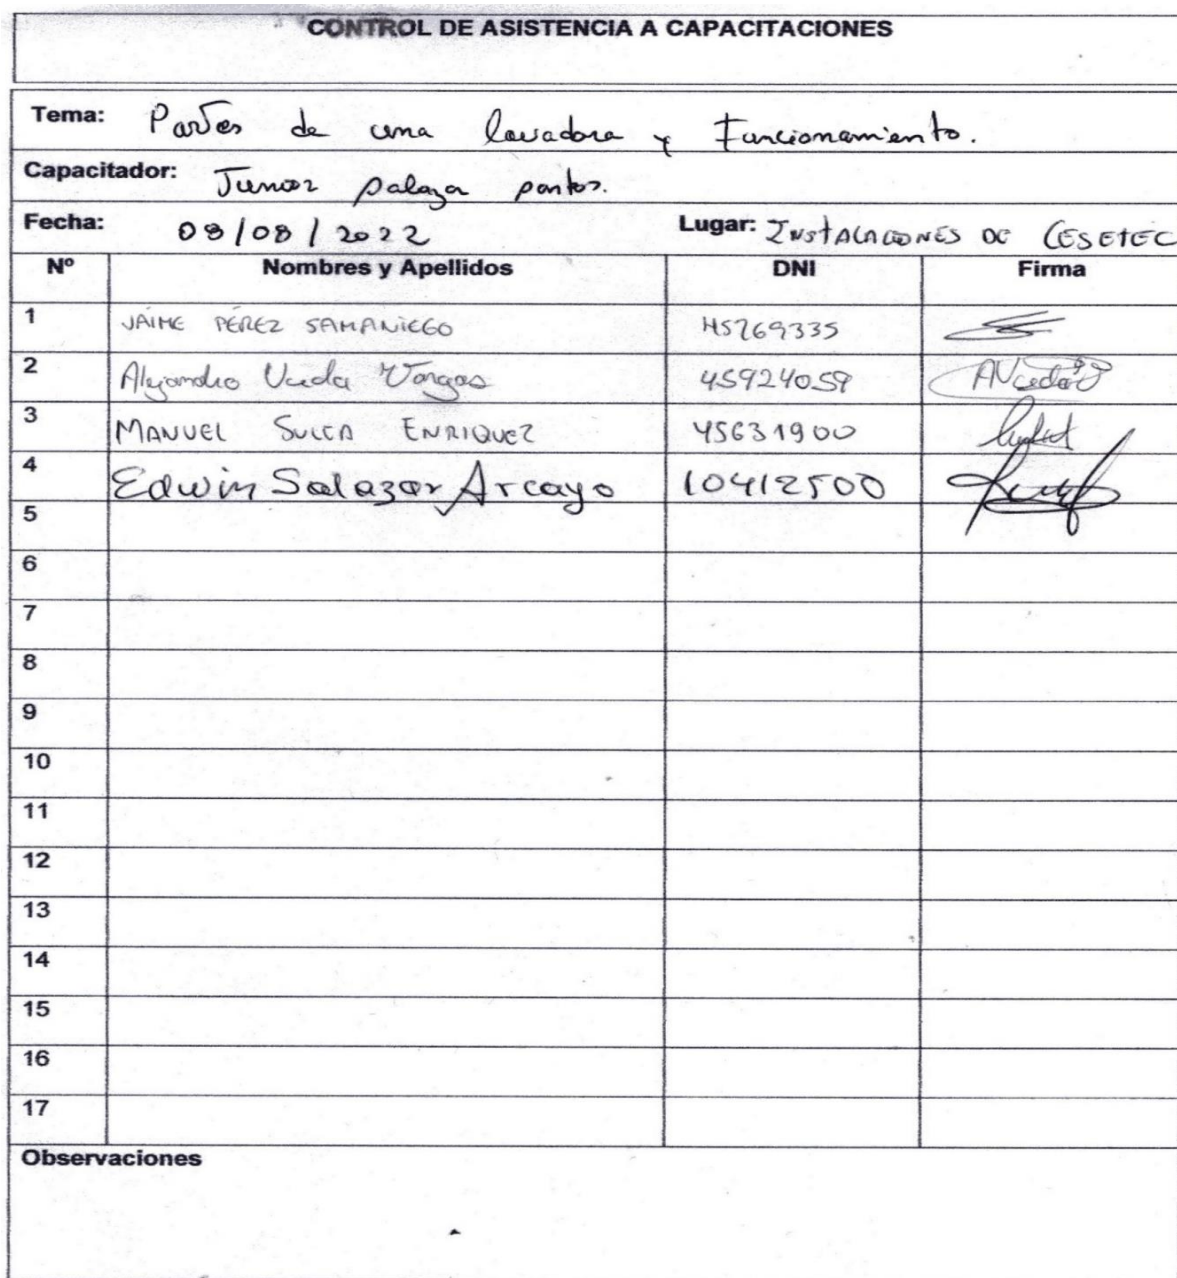 CONTROL DE ASISTENCIA A CAPACITACIONES
Tema: Partes de una lavadora y Funcionamiento.
Capacitador: Junior palaza pantos.
Fecha: 08/08/2022 Lugar: INSTALACIONES DE CESETEC
Nº Nombres y Apellidos DNI Firma
1 JAIME PÉREZ SAMANIEGO 45769335
2 Alejandro Uceda Vargas 45924059
3 MANUEL SULCA ENRIQUEZ 45631900
4 Edwin Salazar Arcayo 10412500
5
6
7
8
9
10
11
12
13
14
15
16
17
Observaciones